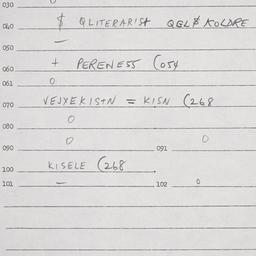 030
040 $ QLITERARIST QGL$ KOLDRE
050 —
060 + PERENESS (054
061 0
070 VEJXEKISTN = KISN (268
080 0
090 0 091 0
100 KISELE (268
101 — 102 0